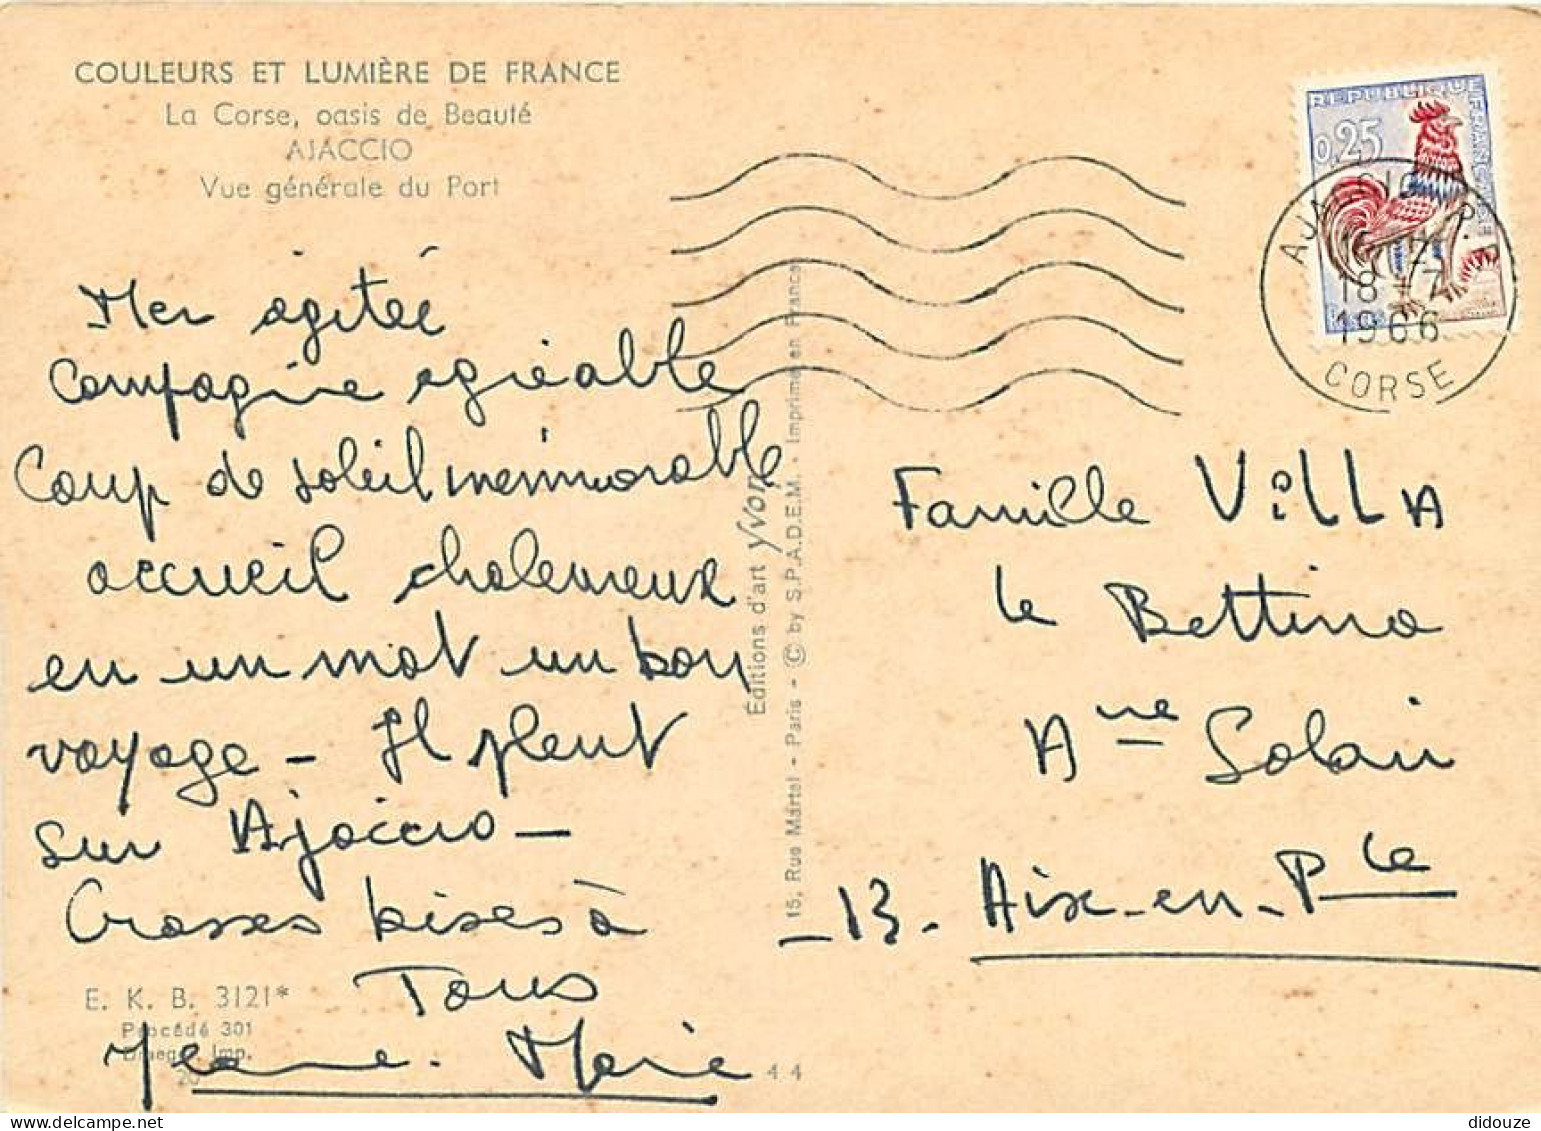 COULEURS ET LUMIÈRE DE FRANCE
La Corse, oasis de Beauté
AJACCIO
Vue générale du Port
Mer agitée
Compagnie agréable
Coup de soleil memmorable
accueil chaleureux
en un mot un bon
voyage - Il pleut
sur Ajaccio -
Grosses bises à
Tous
Jeanne-Marie
E. K. B. 3121*
Procédé 301
Draeger Imp.
20
44
Éditions d'art yvon
15, Rue Martel - Paris - © by S.P.A.D.E.M. - Imprimé en France
RÉPUBLIQUE FRANÇAISE
0,25
AJACCIO R.P.
18-7
1966
CORSE
Famille ViLLA
le Bettina
Ane Solari
-13- Aix-en-Pce
didouze